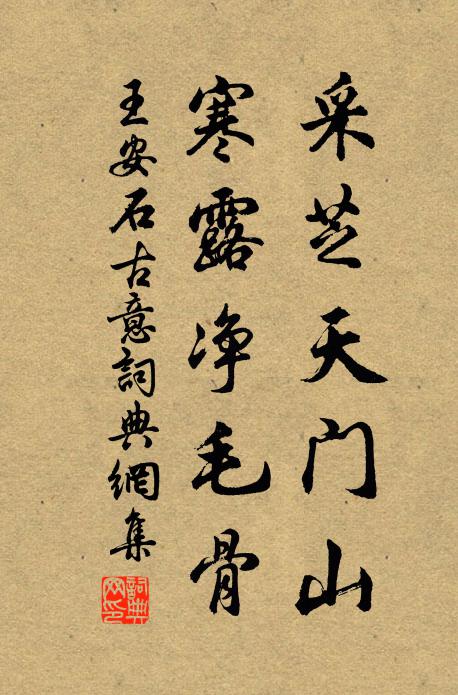 采芝天门山
寒露净毛骨
王安石古意詞典網集
詞典網印